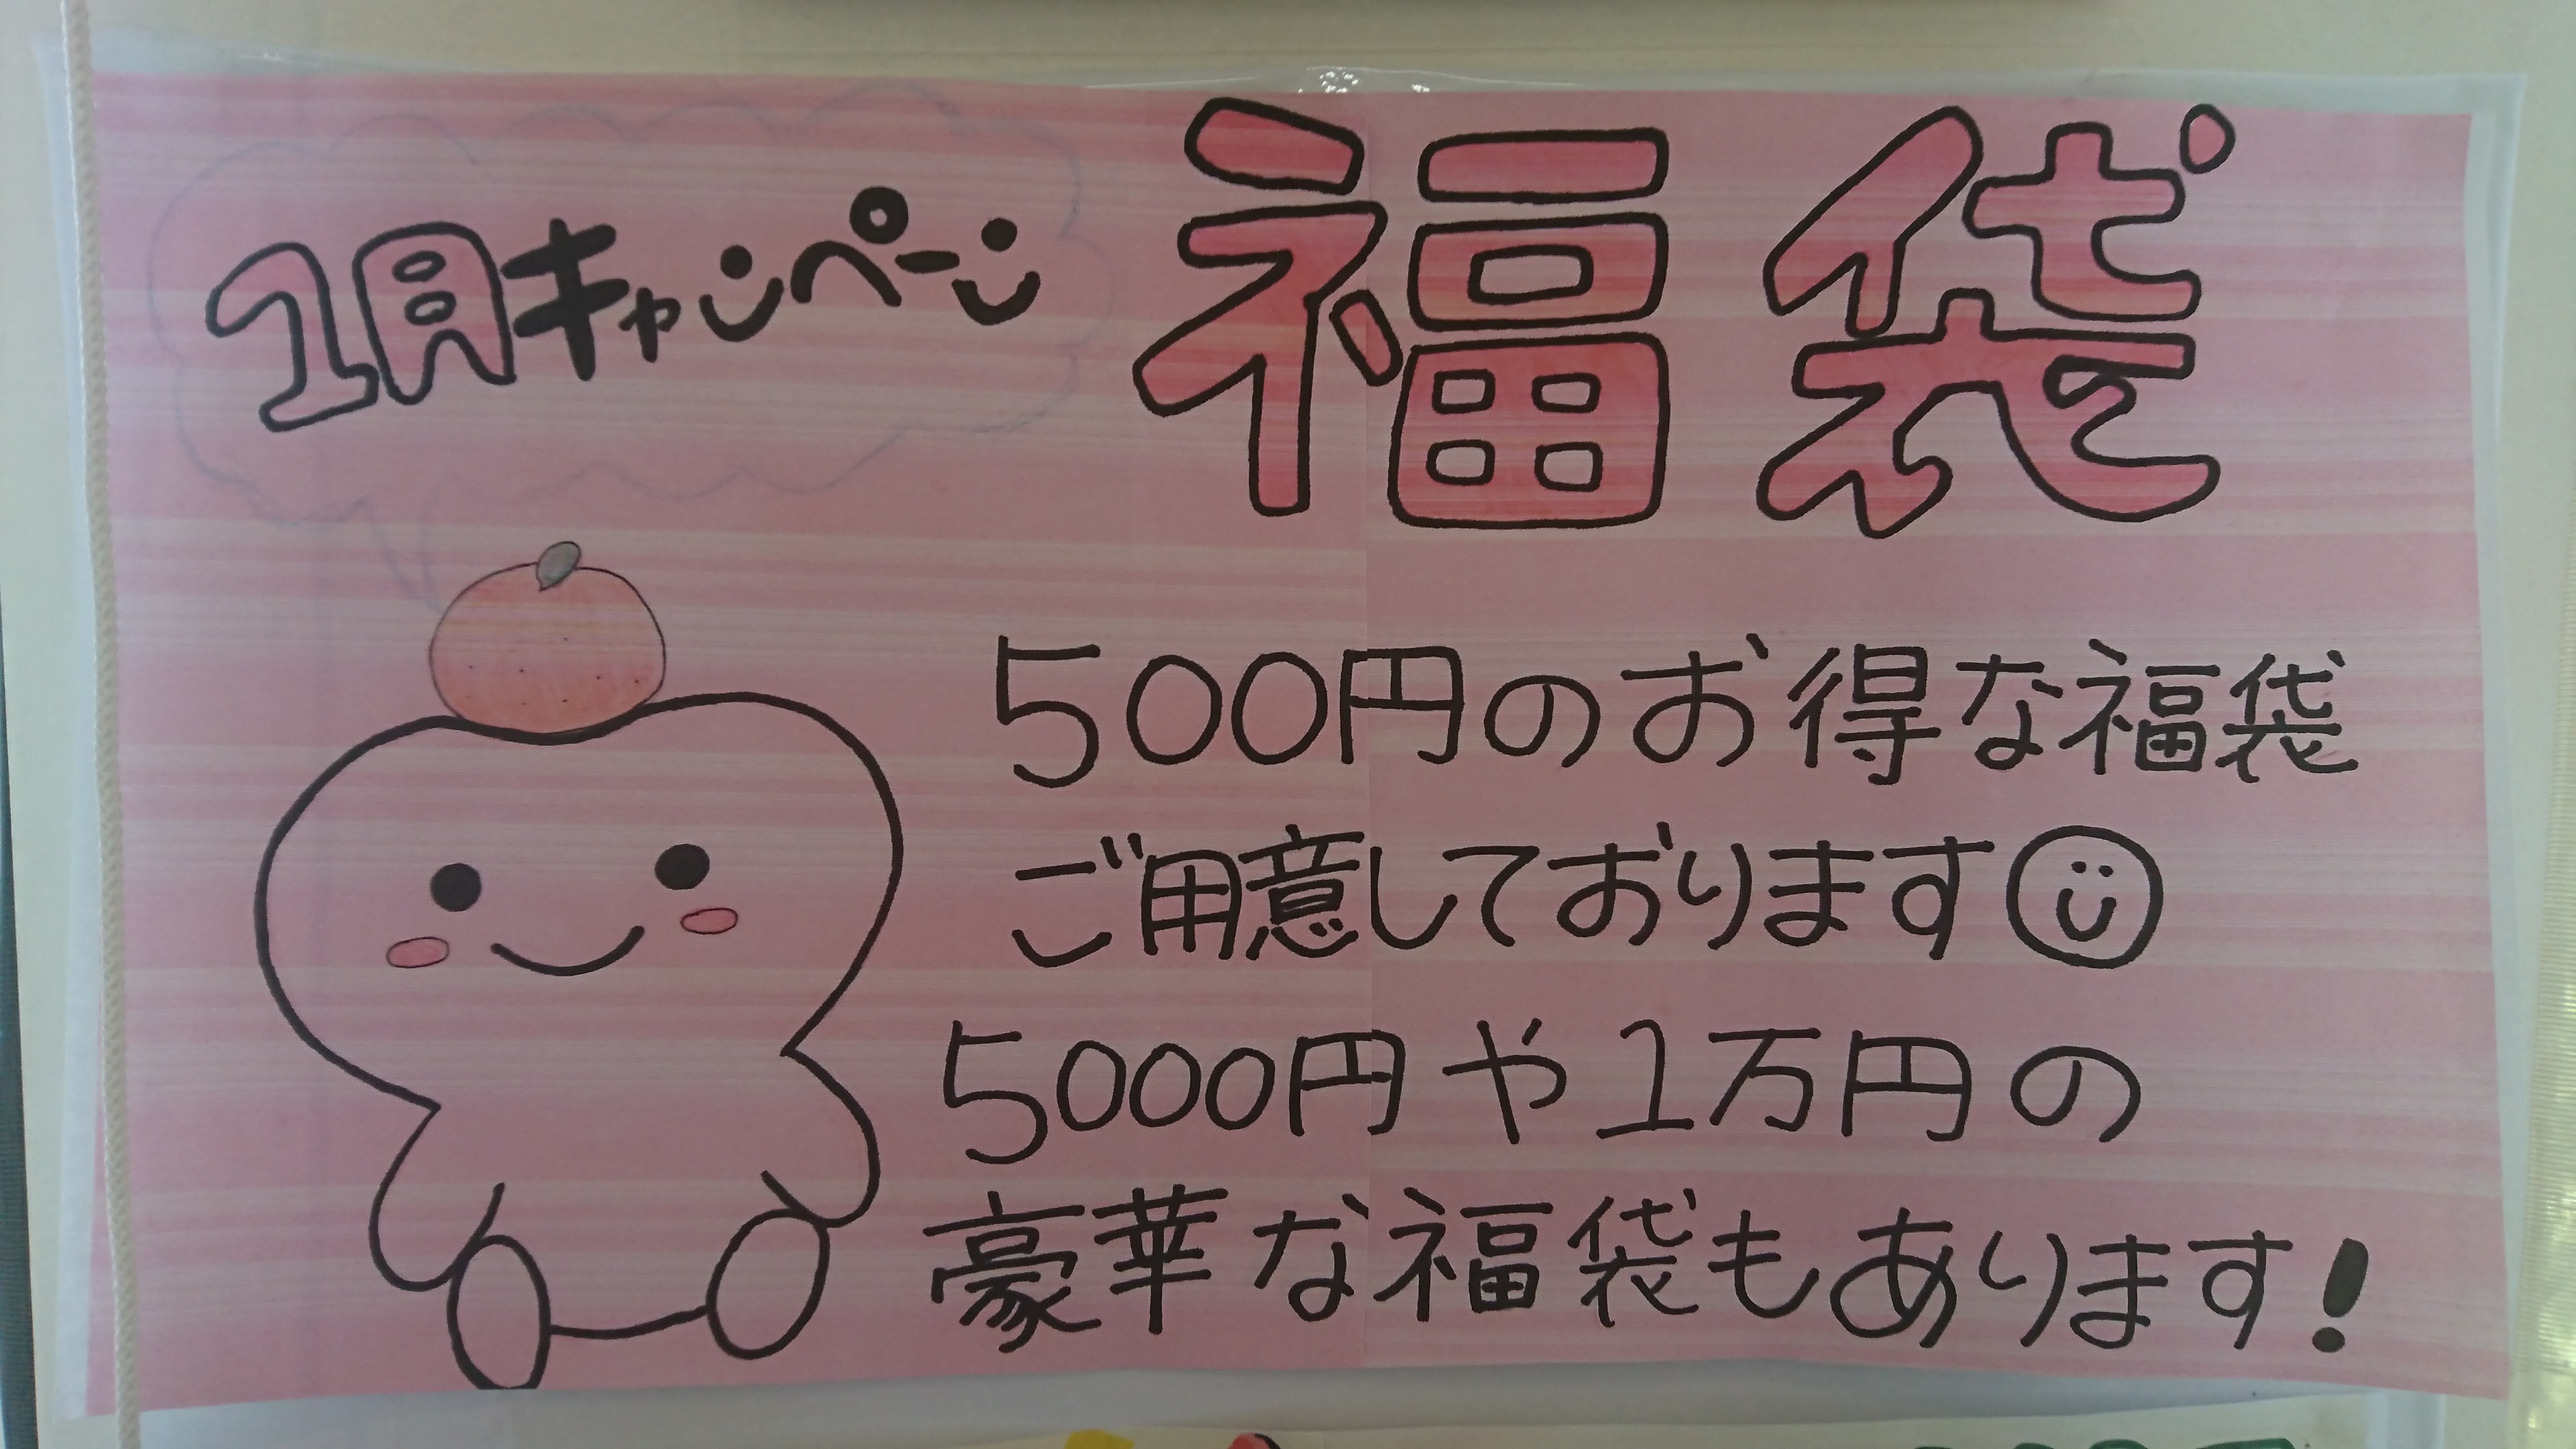 1月キャンペーン
福袋
500円のお得な福袋
ご用意しております
5000円や1万円の
豪華な福袋もあります!